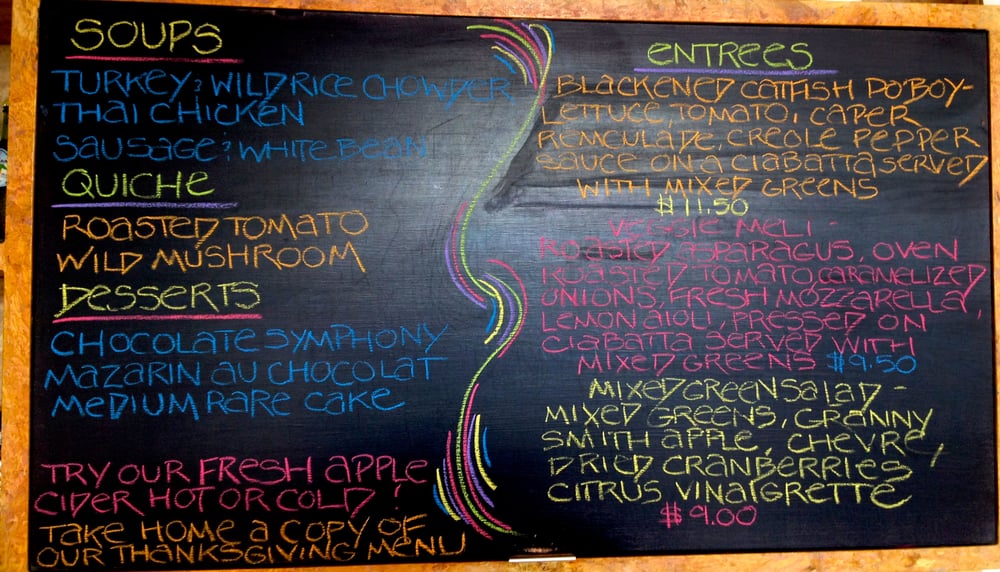 SOUPS
TURKEY & WILD RICE CHOWDER
THAI CHICKEN
SAUSAGE & WHITE BEAN
QUICHE
ROASTED TOMATO
WILD MUSHROOM
DESSERTS
CHOCOLATE SYMPHONY
MAZARIN AU CHOCOLAT
MEDIUM RARE CAKE
TRY OUR FRESH APPLE
CIDER HOT OR COLD!
TAKE HOME A COPY OF
OUR THANKSGIVING MENU
ENTREES
BLACKENED CATFISH PO'BOY-
LETTUCE, TOMATO, CAPER
REMEULADE, CREOLE PEPPER
SAUCE ON A CIABATTA SERVED
WITH MIXED GREENS
$11.50
VEGGIE MELT -
ROASTED ASPARAGUS, OVEN
ROASTED TOMATO, CARAMELIZED
ONIONS, FRESH MOZZARELLA,
LEMON AIOLI, PRESSED ON
CIABATTA SERVED WITH
MIXED GREENS $9.50
MIXED GREEN SALAD -
MIXED GREENS, GRANNY
SMITH APPLE, CHEVRE,
DRIED CRANBERRIES
CITRUS VINAIGRETTE
$9.00